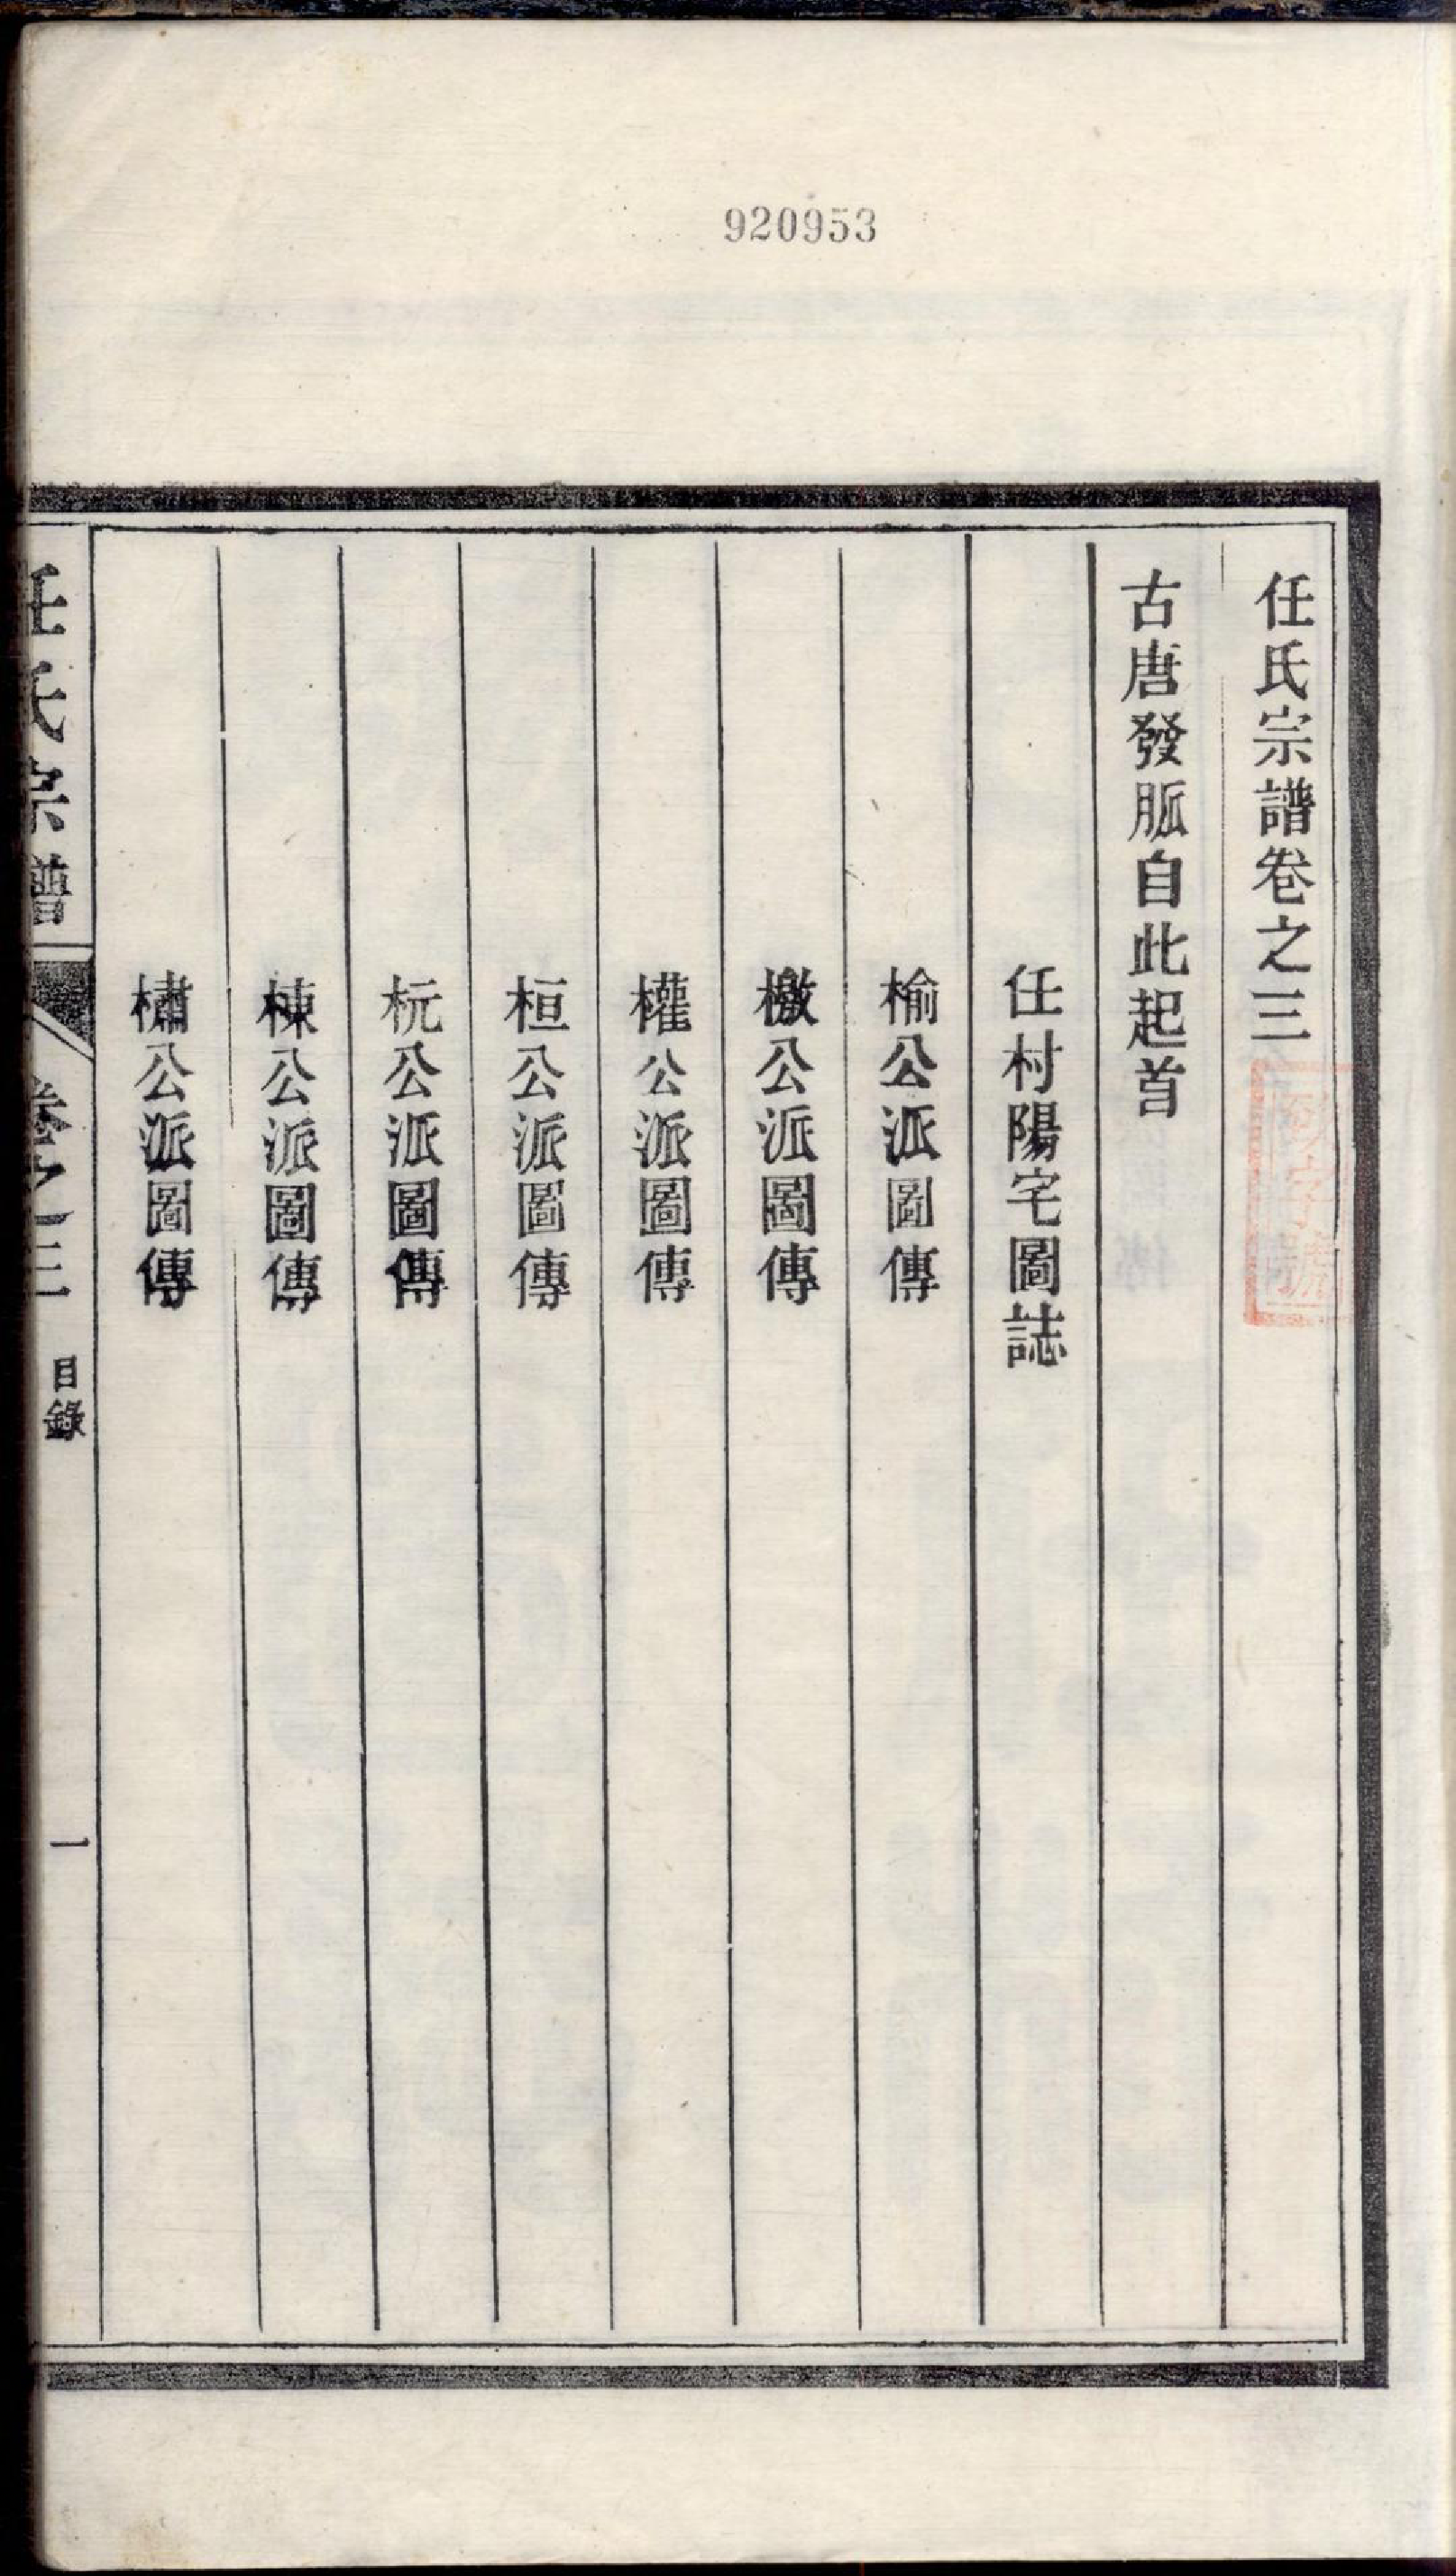 920953
任氏宗譜卷之三
古唐發脈自此起首
任村陽宅圖誌
榆公派圖傳
檄公派圖傳
權公派圖傳
桓公派圖傳
杬公派圖傳
棟公派圖傳
橚公派圖傳
任氏宗譜
卷之三
目錄
一
字號